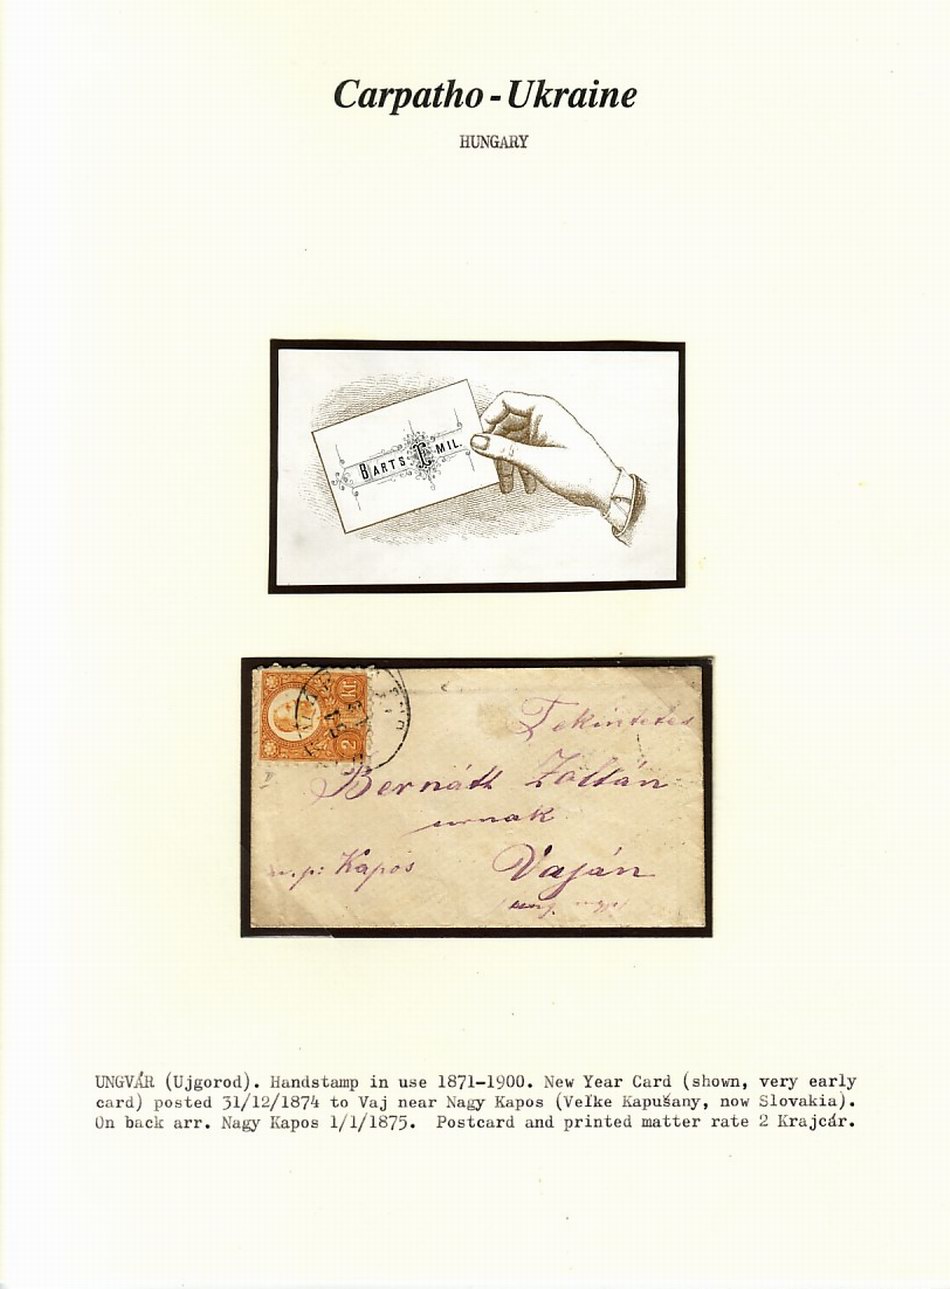 Carpatho-Ukraine
HUNGARY
BARTS EMIL.
2 Kr
Tekintetes
Bernáth Zoltán
urnak
u.p: Kapos
Vaján
UNGVÁR (Ujgorod). Handstamp in use 1871-1900. New Year Card (shown, very early
card) posted 31/12/1874 to Vaj near Nagy Kapos (Veľke Kapušany, now Slovakia).
On back arr. Nagy Kapos 1/1/1875. Postcard and printed matter rate 2 Krajcár.